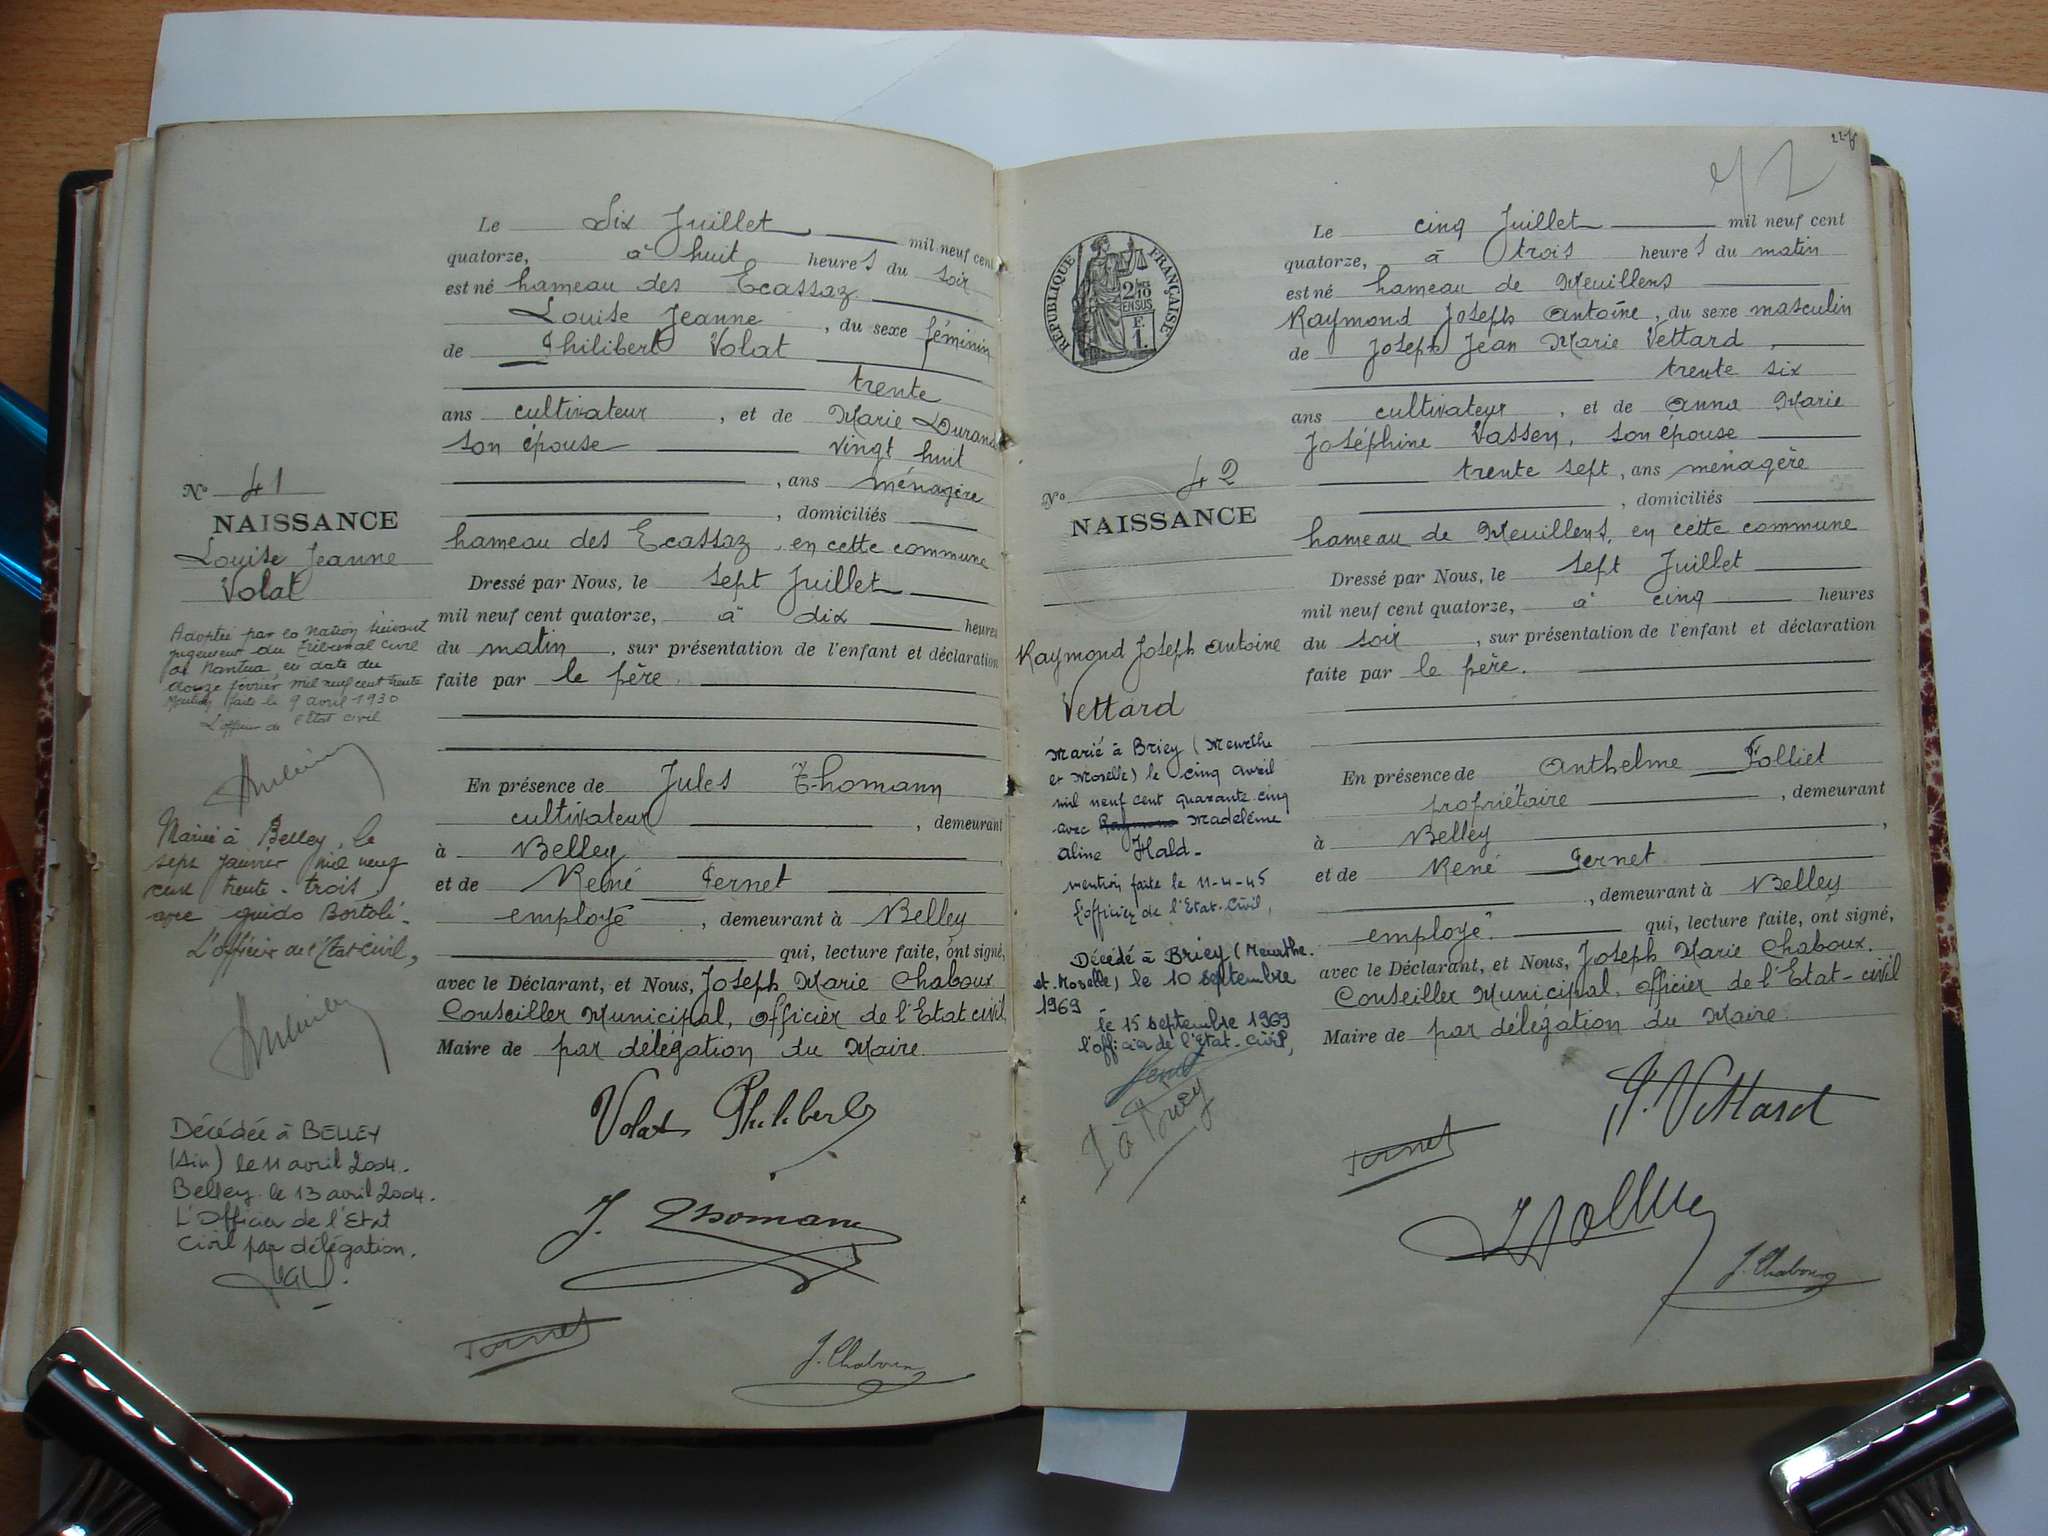 Le Six Juillet mil neuf cent
quatorze, à huit heures du soir
est né hameau des Ecassaz
Louise Jeanne, du sexe féminin
de Philibert Volat
trente
ans cultivateur, et de Marie Durand
son épouse vingt huit
, ans ménagère
, domiciliés
hameau des Ecassaz, en cette commune
Dressé par Nous, le sept Juillet
mil neuf cent quatorze, à dix heures
du matin, sur présentation de l'enfant et déclaration
faite par le père.
En présence de Jules Thomann
cultivateur, demeurant
à Belley
et de René Pernet
employé, demeurant à Belley
qui, lecture faite, ont signé,
avec le Déclarant, et Nous, Joseph Marie Chaboux
Conseiller Municipal, Officier de l'Etat civil
Maire de par délégation du Maire.
Volat Philibert
J. Thomann
Pernet
J. Chaboux
No 41
NAISSANCE
Louise Jeanne
Volat
Adoptée par la Nation suivant
jugement du Tribunal civil
de Nantua, en date du
douze février mil neuf cent trente
Mention faite le 9 avril 1930
L'officier de l'Etat civil
Mariée à Belley, le
sept janvier mil neuf
cent trente-trois
avec Guido Bortoli.
L'officier de l'Etat civil,
Décédée à BELLEY
(Ain) le 11 avril 2004.
Belley le 13 avril 2004.
L'Officier de l'Etat
Civil par délégation.
22 f
42
RÉPUBLIQUE FRANÇAISE
2/10
EN SUS
F.
1.
Le cinq Juillet mil neuf cent
quatorze, à trois heures du matin
est né hameau de Meuillens
Raymond Joseph Antoine, du sexe masculin
de Joseph Jean Marie Vettard,
trente six
ans cultivateur, et de Anna Marie
Joséphine Vassey, son épouse
trente sept, ans ménagère
, domiciliés
hameau de Meuillens, en cette commune
Dressé par Nous, le sept Juillet
mil neuf cent quatorze, à cinq heures
du soir, sur présentation de l'enfant et déclaration
faite par le père.
En présence de Anthelme Folliet
propriétaire, demeurant
à Belley,
et de René Pernet
, demeurant à Belley
employé. qui, lecture faite, ont signé,
avec le Déclarant, et Nous, Joseph Marie Chaboux.
Conseiller Municipal, Officier de l'Etat-civil
Maire de par délégation du Maire.
J. Vettard
Pernet
J. Chaboux
No 42
NAISSANCE
Raymond Joseph Antoine
Vettard
Marié à Briey (Meurthe
et Moselle) le cinq avril
mil neuf cent quarante cinq
avec Raymond Madeleine
Aline Hald-
mention faite le 11-4-45
l'officier de l'Etat-Civil,
Décédé à Briey (Meurthe.
et.Moselle) le 10 septembre
1969
le 15 septembre 1969
l'officier de l'Etat-Civil,
à Briey